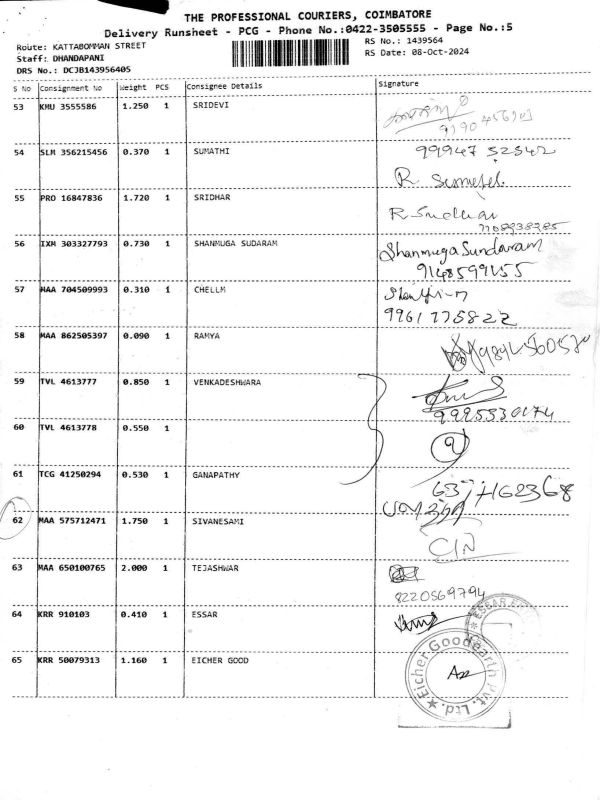 THE PROFESSIONAL COURIERS, COIMBATORE
Delivery Runsheet - PCG - Phone No.:0422-3505555 - Page No.:5
Route: KATTABOMMAN STREET
RS No.: 1439564
Staff: DHANDAPANI
RS Date: 08-Oct-2024
DRS No.: DCJB143956405
S No Consignment No Weight PCS Consignee Details Signature
53 KMU 3555586 1.250 1 SRIDEVI
54 SLM 356215456 0.370 1 SUMATHI
99947 32542
R
55 PRO 16847836 1.720 1 SRIDHAR
R Sridhar
7708938385
56 IXM 303327793 0.730 1 SHANMUGA SUDARAM
Shanmuga Sundaram
9148599155
57 MAA 704509993 0.310 1 CHELLM
9961775822
58 MAA 862505397 0.090 1 RAMYA
59 TVL 4613777 0.850 1 VENKADESHWARA
60 TVL 4613778 0.550 1
61 TCG 41250294 0.530 1 GANAPATHY
62 MAA 575712471 1.750 1 SIVANESAMI
63 MAA 650100765 2.000 1 TEJASHWAR
8220569794
64 KRR 910103 0.410 1 ESSAR
ESSAR
65 KRR 50079313 1.160 1 EICHER GOOD
Eicher Goodearth Pvt. Ltd.